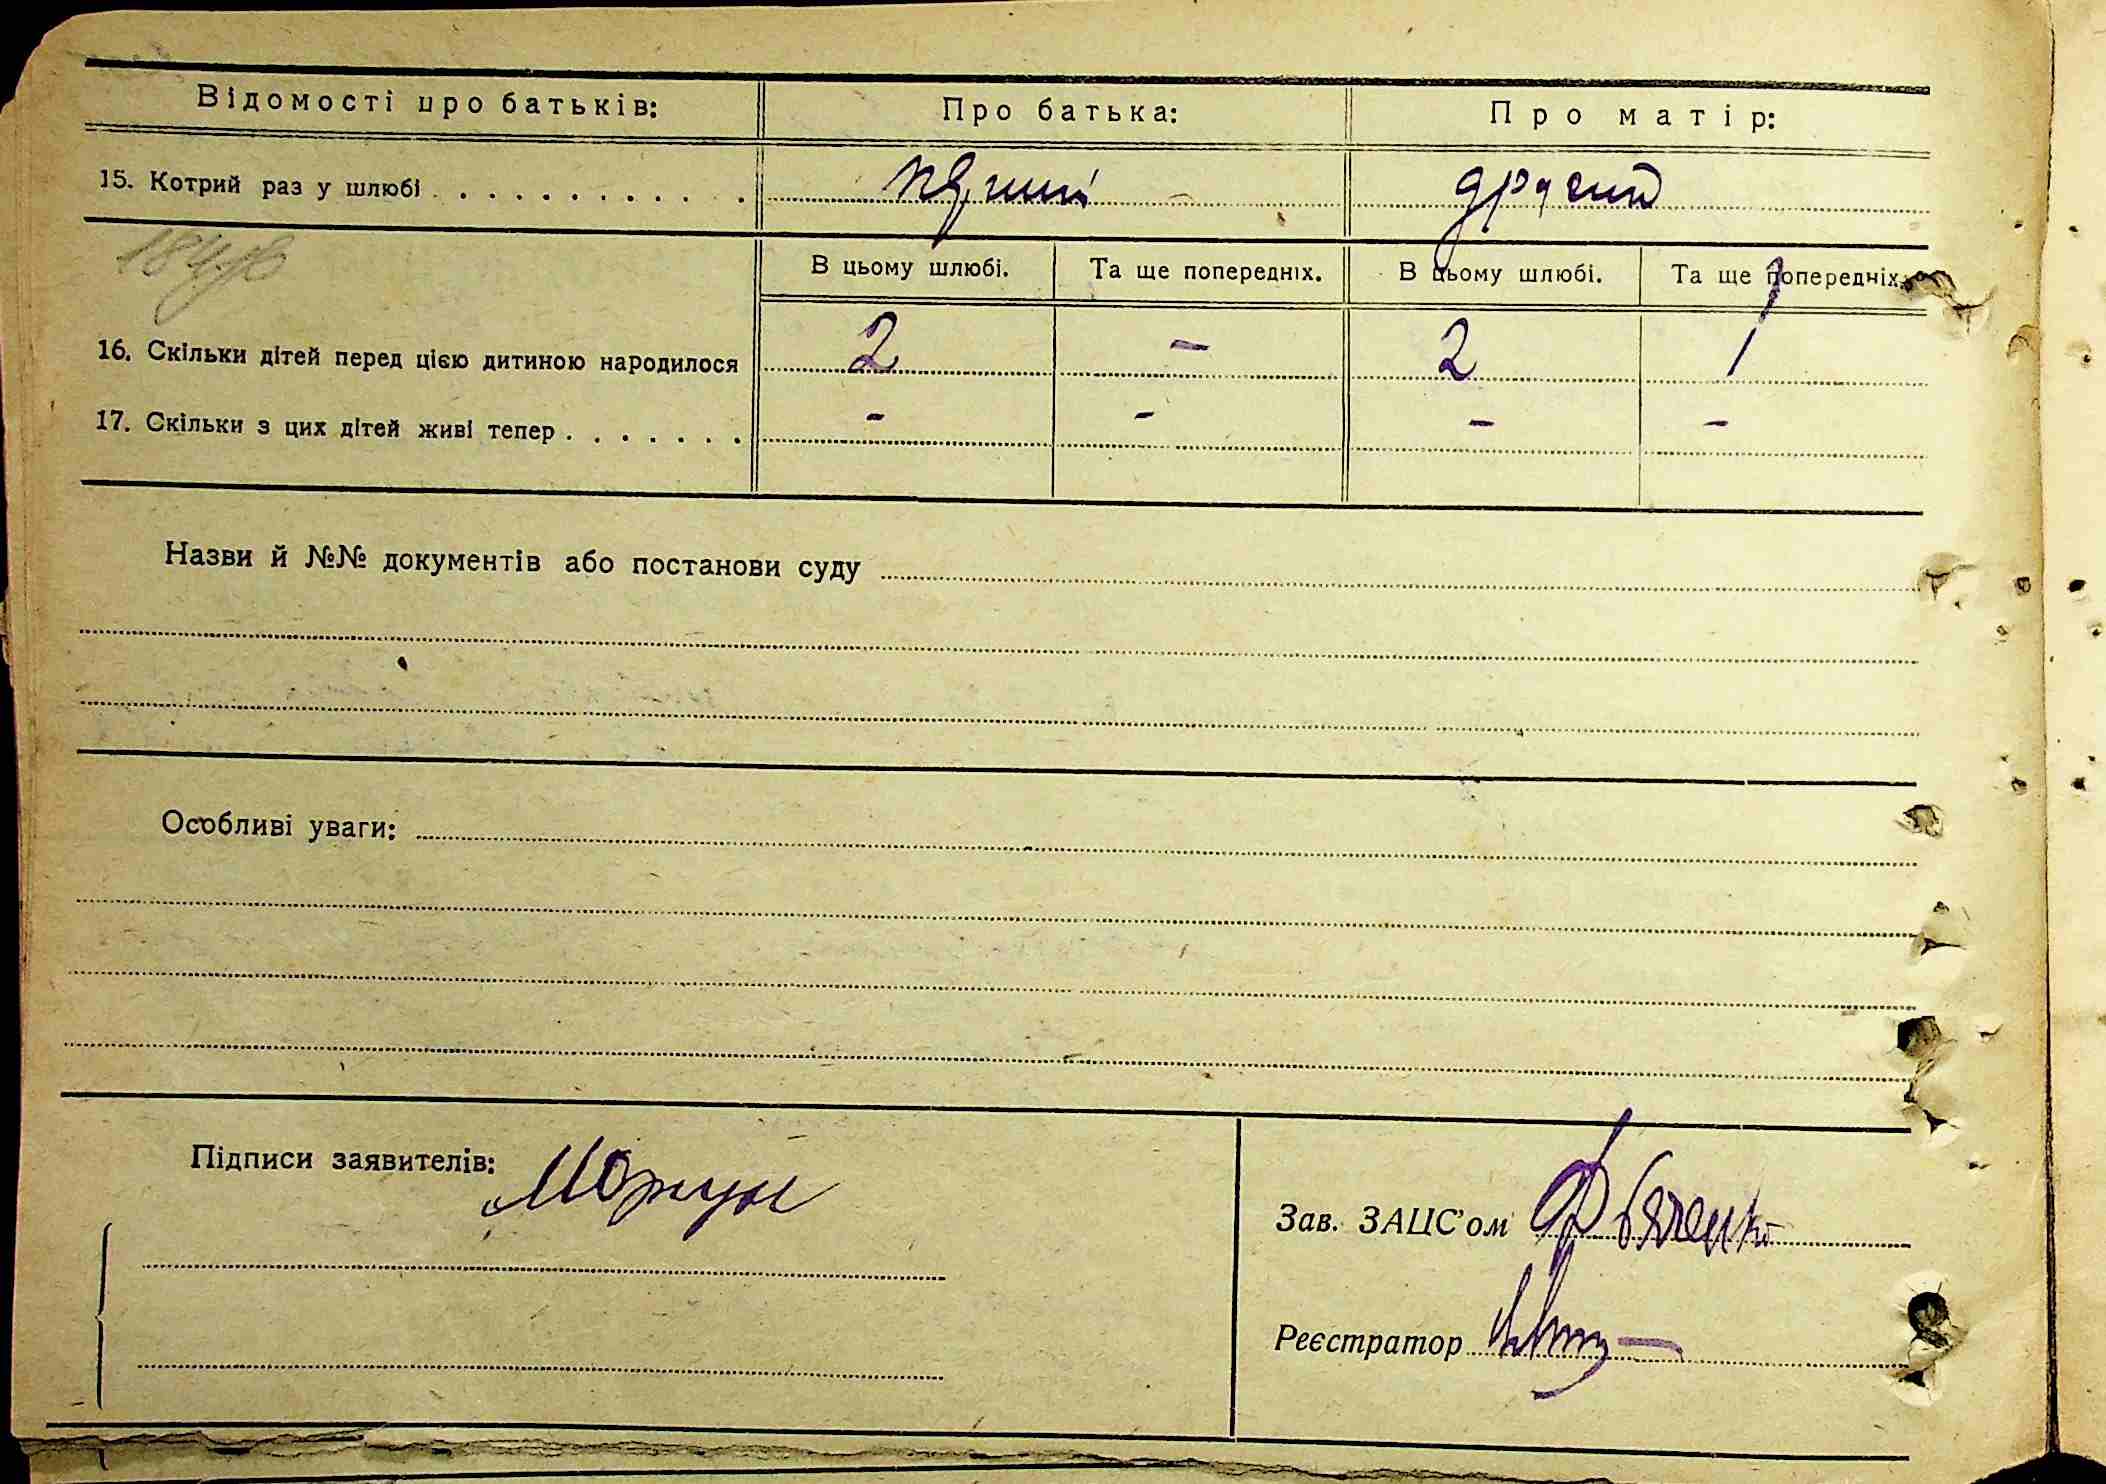 Відомості про батьків: Про батька: Про матір:
15. Котрий раз у шлюбі . . . . . . . . . . . . перший другий
В цьому шлюбі. Та ще попередніх. В цьому шлюбі. Та ще попередніх.
16. Скільки дітей перед цією дитиною народилося 2 – 2 1
17. Скільки з цих дітей живі тепер . . . . . . . – – – –
Назви й №№ документів або постанови суду
Особливі уваги:
Підписи заявителів:
Зав. ЗАЦС’ом
Реєстратор